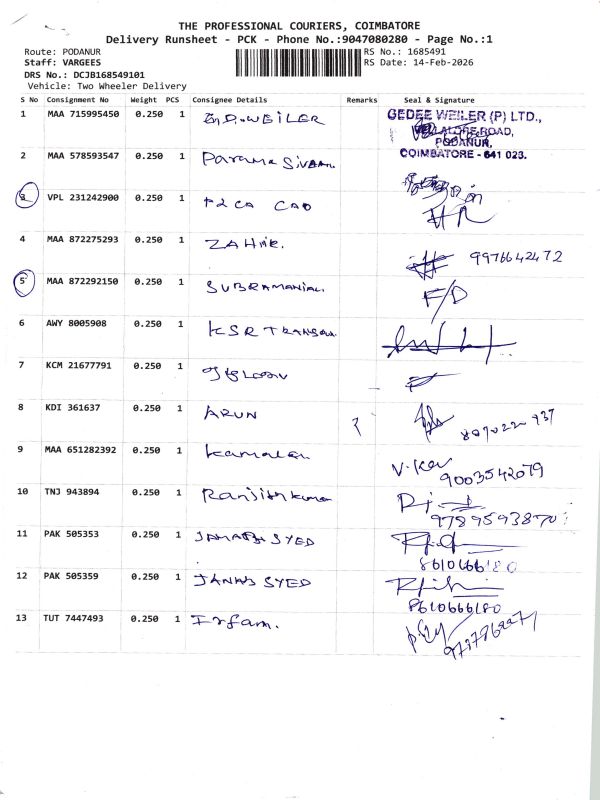 THE PROFESSIONAL COURIERS, COIMBATORE
Delivery Runsheet - PCK - Phone No.:9047080280 - Page No.:1
Route: PODANUR
RS No.: 1685491
Staff: VARGEES
RS Date: 14-Feb-2026
DRS No.: DCJB168549101
Vehicle: Two Wheeler Delivery
S No Consignment No Weight PCS Consignee Details Remarks Seal & Signature
1 MAA 715995450 0.250 1 G.D.WEILER GEDEE WEILER (P) LTD.,
VELLALORE ROAD,
PODANUR,
COIMBATORE - 641 023.
2 MAA 578593547 0.250 1 Parama Sivam
3 VPL 231242900 0.250 1
4 MAA 872275293 0.250 1 ZAHIR. 9976642472
5 MAA 872292150 0.250 1 SUBRAMANIAN F/D
6 AWY 8005908 0.250 1 KSR TRANSPORT
7 KCM 21677791 0.250 1
8 KDI 361637 0.250 1 ARUN
9 MAA 651282392 0.250 1 Kamalan V.Kav
9003542079
10 TNJ 943894 0.250 1 Ranjithkumar
9789593870
11 PAK 505353 0.250 1 SYED
8610666180
12 PAK 505359 0.250 1 JANAB SYED
8610666180
13 TUT 7447493 0.250 1 Irfan.